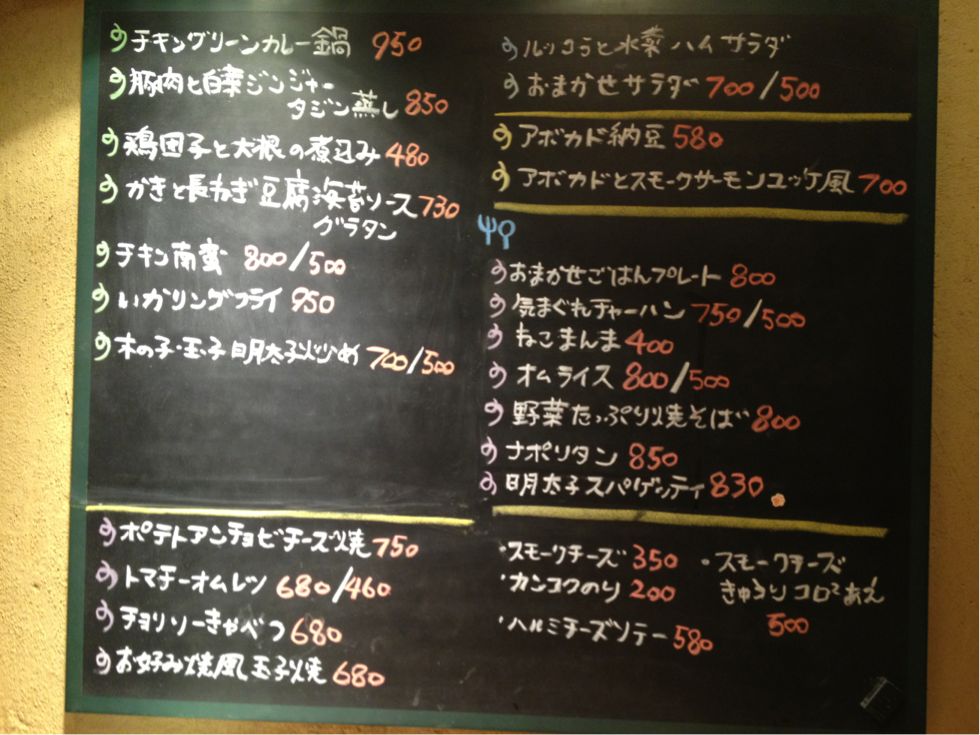 チキングリーンカレー鍋 950
豚肉と白菜ジンジャー
タジン蒸し 850
鶏団子と大根の煮込み 480
かきと長ねぎ豆腐海苔ソース 730
グラタン
チキン南蛮 800/500
いかリングフライ 950
木の子・玉子明太子炒め 700/500
ポテトアンチョビチーズ焼 750
トマチーオムレツ 680/460
チョリソーきゃべつ 680
お好み焼風玉子焼 680
ルッコラと水菜ハムサラダ
おまかせサラダ 700/500
アボカド納豆 580
アボカドとスモークサーモンユッケ風 700
おまかせごはんプレート 800
気まぐれチャーハン 750/500
ねこまんま 400
オムライス 800/500
野菜たっぷり焼そば 800
ナポリタン 850
明太子スパゲッティ 830
・スモークチーズ 350
・カンコクのり 200
・ハルミチーズソテー 580
・スモークチーズ
きゅうりコロコロあえ
500